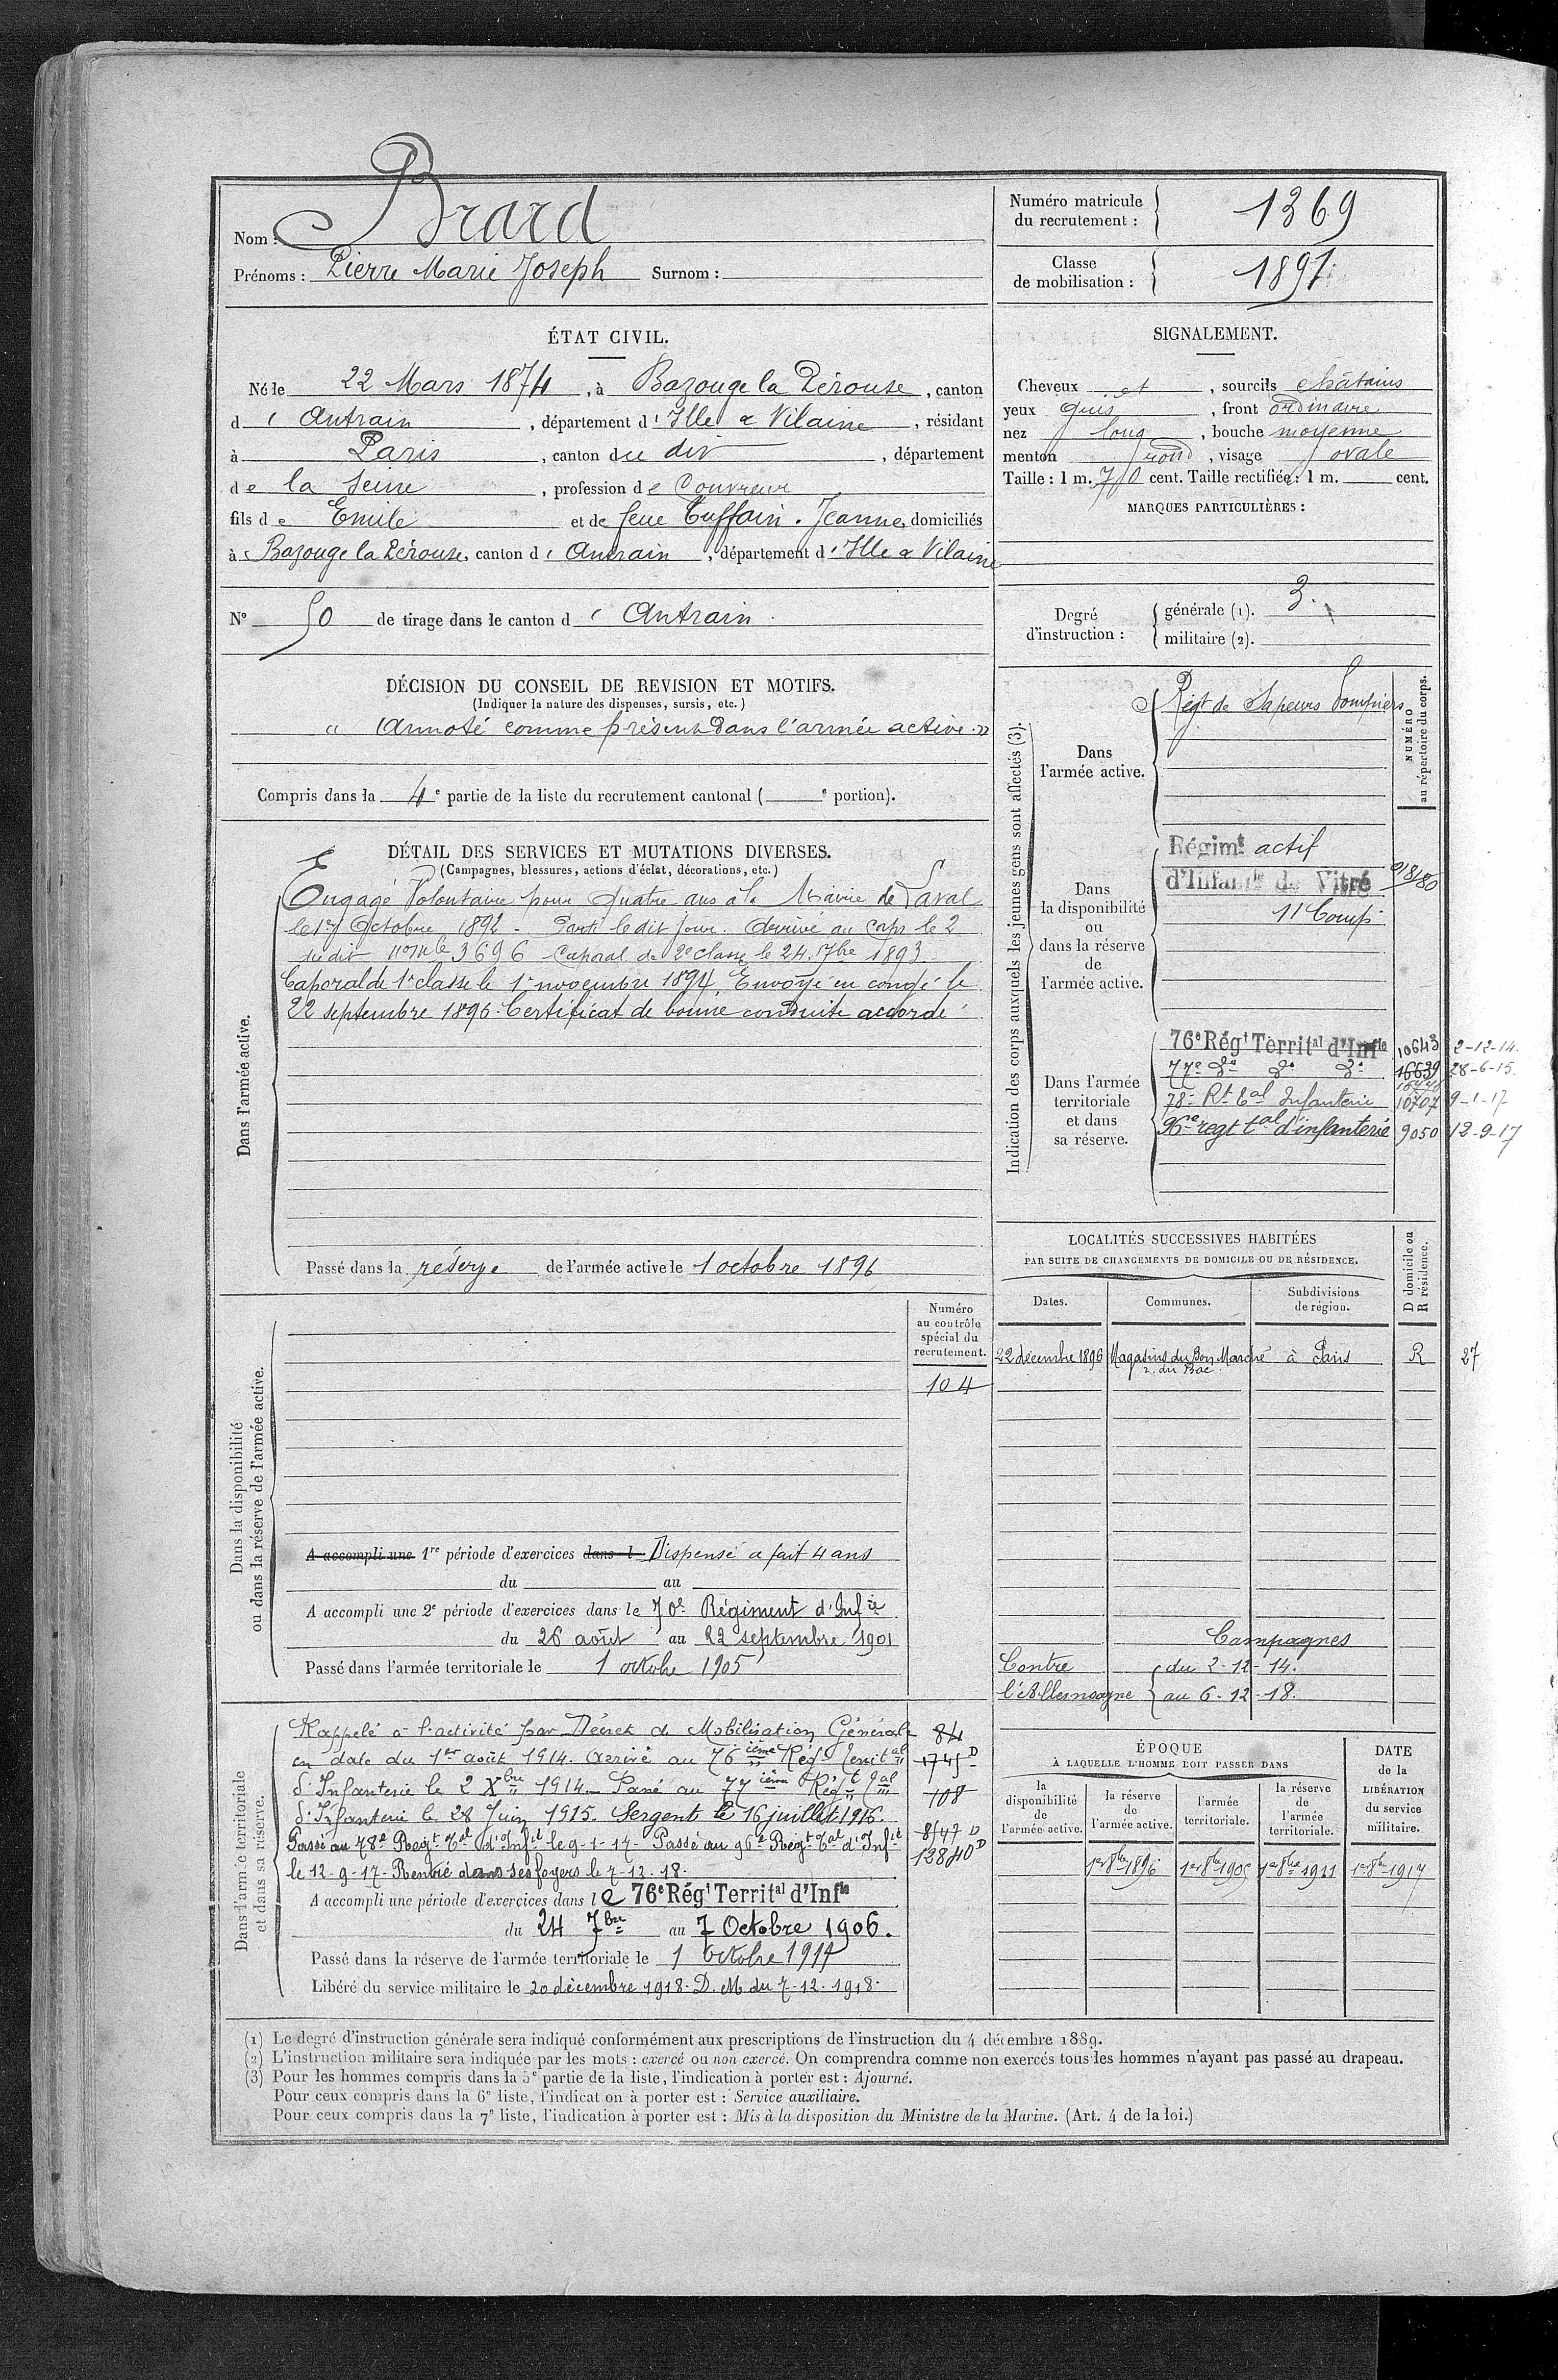 Nom : Brard
Prénoms : Pierre Marie Joseph Surnom :
Numéro matricule du recrutement : 1369
Classe de mobilisation : 1891
ÉTAT CIVIL.
Né le 22 Mars 1874, à Bazouge la Pérouse, canton
d' Antrain, département d' Ille & Vilaine, résidant
à Paris, canton du dit, département
de la Seine, profession de Couvreur
fils de Emile et de feue Tuffain. Jeanne, domiciliés
à Bazouge la Pérouse, canton d' Antrain, département d' Ille & Vilaine
N° 50 de tirage dans le canton d' Antrain.
SIGNALEMENT.
Cheveux et, sourcils châtains
yeux gris, front ordinaire
nez long, bouche moyenne
menton rond, visage ovale
Taille : 1 m. 70 cent. Taille rectifiée : 1 m. cent.
MARQUES PARTICULIÈRES :
Degré d'instruction : générale (1). 3.
militaire (2).
DÉCISION DU CONSEIL DE REVISION ET MOTIFS.
(Indiquer la nature des dispenses, sursis, etc.)
" Annoté comme présent dans l'armée active. "
Compris dans la 4e partie de la liste du recrutement cantonal ( e portion).
DÉTAIL DES SERVICES ET MUTATIONS DIVERSES.
(Campagnes, blessures, actions d'éclat, décorations, etc.)
Dans l'armée active.
Engagé Volontaire pour quatre ans à la Mairie de Laval
le 1er Octobre 1892 - Parti le dit jour. Arrivé au Corps le 2
du dit n° mle 3696 Caporal de 2e classe le 24. 7bre 1893
Caporal de 1e classe le 1er novembre 1894, Envoyé en congé le
22 septembre 1896. Certificat de bonne conduite accordé
Passé dans la réserve de l'armée active le 1 octobre 1896
Indication des corps auxquels les jeunes gens sont affectés (3).
NUMÉRO au répertoire du corps.
Dans l'armée active.
Régt de Sapeurs Pompiers
Dans la disponibilité ou dans la réserve de l'armée active.
Régimt actif
d'Infanie de Vitré
11e Comp.
Dans l'armée territoriale et dans sa réserve.
76e Régt Territal d'Infie 10643 2-12-14.
77e do do do 16639 28-6-15.
78e Rt tal Infanterie 10707 9-1-17
96e regt tal d'infanterie 9050 12-9-17
LOCALITÉS SUCCESSIVES HABITÉES
PAR SUITE DE CHANGEMENTS DE DOMICILE OU DE RÉSIDENCE.
Dates. Communes. Subdivisions de région. D domicile ou R résidence.
22 décembre 1896 Magasins du Bon Marché à Paris R 27
r. du Bac
Campagnes
Contre l'Allemagne du 2-12-14.
au 6-12-18.
Dans la disponibilité ou dans la réserve de l'armée active.
Numéro au contrôle spécial du recrutement.
104
A accompli une 1re période d'exercices dans l Dispensé a fait 4 ans
du au
A accompli une 2e période d'exercices dans le 70e Régiment d'Infie
du 26 août au 22 septembre 1901
Passé dans l'armée territoriale le 1 octobre 1905
Dans l'armée territoriale et dans sa réserve.
Rappelé à l'activité par Décret de Mobilisation Générale
en date du 1er août 1914. Arrivé au 76ième Rég. Territal
d'Infanterie le 2 Xbre 1914. Passé au 77ième Régt Tal
d'Infanterie le 28 Juin 1915. Sergent le 16 juillet 1916.
Passé au 78e Regt Tal d'Infie le 9-1-17- Passé au 96e Regt Tal d'Infie
le 12-9-17- Rentré dans ses foyers le 7-12-18.
84
1745 D
108
8547 D
12840 D
A accompli une période d'exercices dans le 76e Régt Territal d'Infie
du 24 7bre au 7 Octobre 1906.
Passé dans la réserve de l'armée territoriale le 1 octobre 1914
Libéré du service militaire le 20 décembre 1918. D. M du 7-12-1918.
ÉPOQUE À LAQUELLE L'HOMME DOIT PASSER DANS
la disponibilité de l'armée active.
la réserve de l'armée active.
l'armée territoriale.
la réserve de l'armée territoriale.
DATE de la LIBÉRATION du service militaire.
1er 8bre 1896 1er 8bre 1905 1er 8bre 1911 1er 8bre 1917
(1) Le degré d'instruction générale sera indiqué conformément aux prescriptions de l'instruction du 4 décembre 1889.
(2) L'instruction militaire sera indiquée par les mots : exercé ou non exercé. On comprendra comme non exercés tous les hommes n'ayant pas passé au drapeau.
(3) Pour les hommes compris dans la 5e partie de la liste, l'indication à porter est : Ajourné.
Pour ceux compris dans la 6e liste, l'indication à porter est : Service auxiliaire.
Pour ceux compris dans la 7e liste, l'indication à porter est : Mis à la disposition du Ministre de la Marine. (Art. 4 de la loi.)